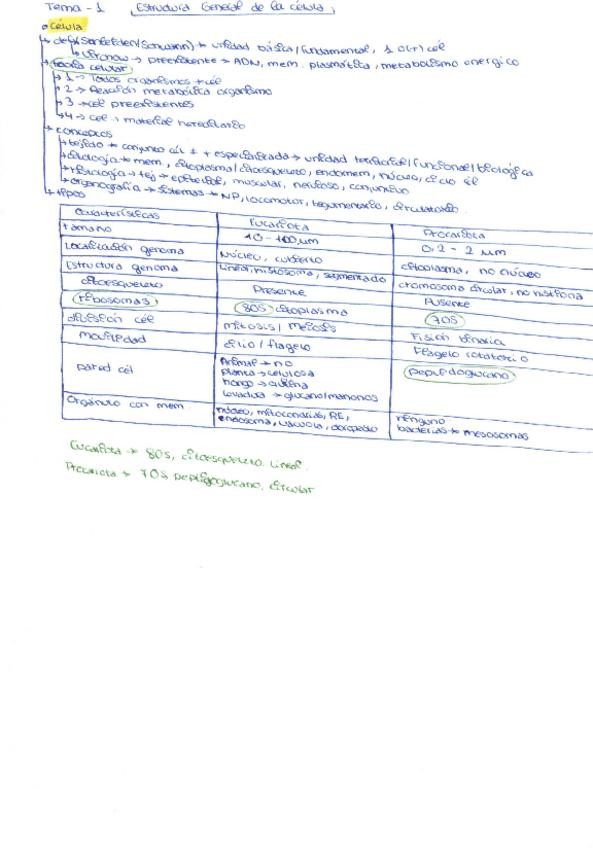 Tema - 1 Estructura General de la célula
célula
def (Schleiden/Schwann) → unidad básica/fundamental, 1 o (+) cél
Virchow → preexistente → ADN, mem. plasmática, metabolismo energico
teoría celular
1 → Todos organismos + cél
2 → Reacción metabólica organismo
3 → cél preexistentes
4 → cél : material hereditario
conceptos
tejido → conjunto cél ± especializada → unidad territorial/funcional/biológica
citología → mem, citoplasma/citoesqueleto, endomem, núcleo, ciclo cél
histología → tej → epitelial, muscular, nervioso, conjuntivo
organografía → sistemas → NP, locomotor, tegumentario, circulatorio.
tipos
Características Eucariota Procariota
tamaño 10 - 100 µm 0.2 - 2 µm
Localización genoma Núcleo, cubierto citoplasma, no núcleo
Estructura genoma Lineal, histosoma, segmentado cromosoma circular, no histona
citoesqueleto Presente Ausente
ribosomas 80S citoplasma 70S
división cél mitosis/Meiosis Fisión binaria
Movilidad cilio/flagelo Flagelo rotatorio
pared cél Animal → no peptidoglucano
planta → celulosa
hongo → quitina
levadura → glucano/mananos
Orgánulo con mem núcleo, mitocondrias, RE, ninguno
endosoma, vacuola, cloroplasto bacterias → mesosomas
Eucariota → 80S, citoesqueleto. Lineal.
Procariota → 70S peptidoglucano. circular